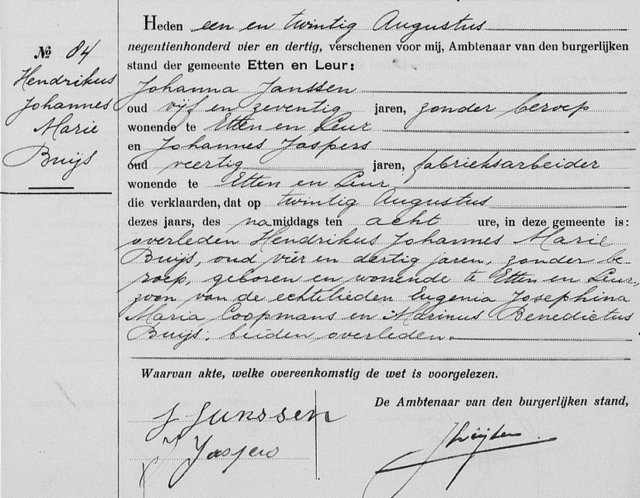 № 84
Hendrikus
Johannes
Marie
Buijs
Heden een en twintig Augustus
negentienhonderd vier en dertig, verschenen voor mij, Ambtenaar van den burgerlijken
stand der gemeente Etten en Leur:
Johanna Janssen
oud vijf en zeventig jaren, zonder beroep
wonende te Etten en Leur
en Johannes Jaspers
oud veertig jaren, fabrieksarbeider
wonende te Etten en Leur
die verklaarden, dat op twintig Augustus
dezes jaars, des namiddags ten acht ure, in deze gemeente is:
overleden Hendrikus Johannes Marie
Buijs, oud vier en dertig jaren, zonder be-
roep, geboren en wonende te Etten en Leur,
zoon van de echtelieden Eugenia Josephina
Maria Coopmans en Marinus Benedictus
Buijs, beiden overleden.
Waarvan akte, welke overeenkomstig de wet is voorgelezen.
De Ambtenaar van den burgerlijken stand,
J Janssen
J Jaspers